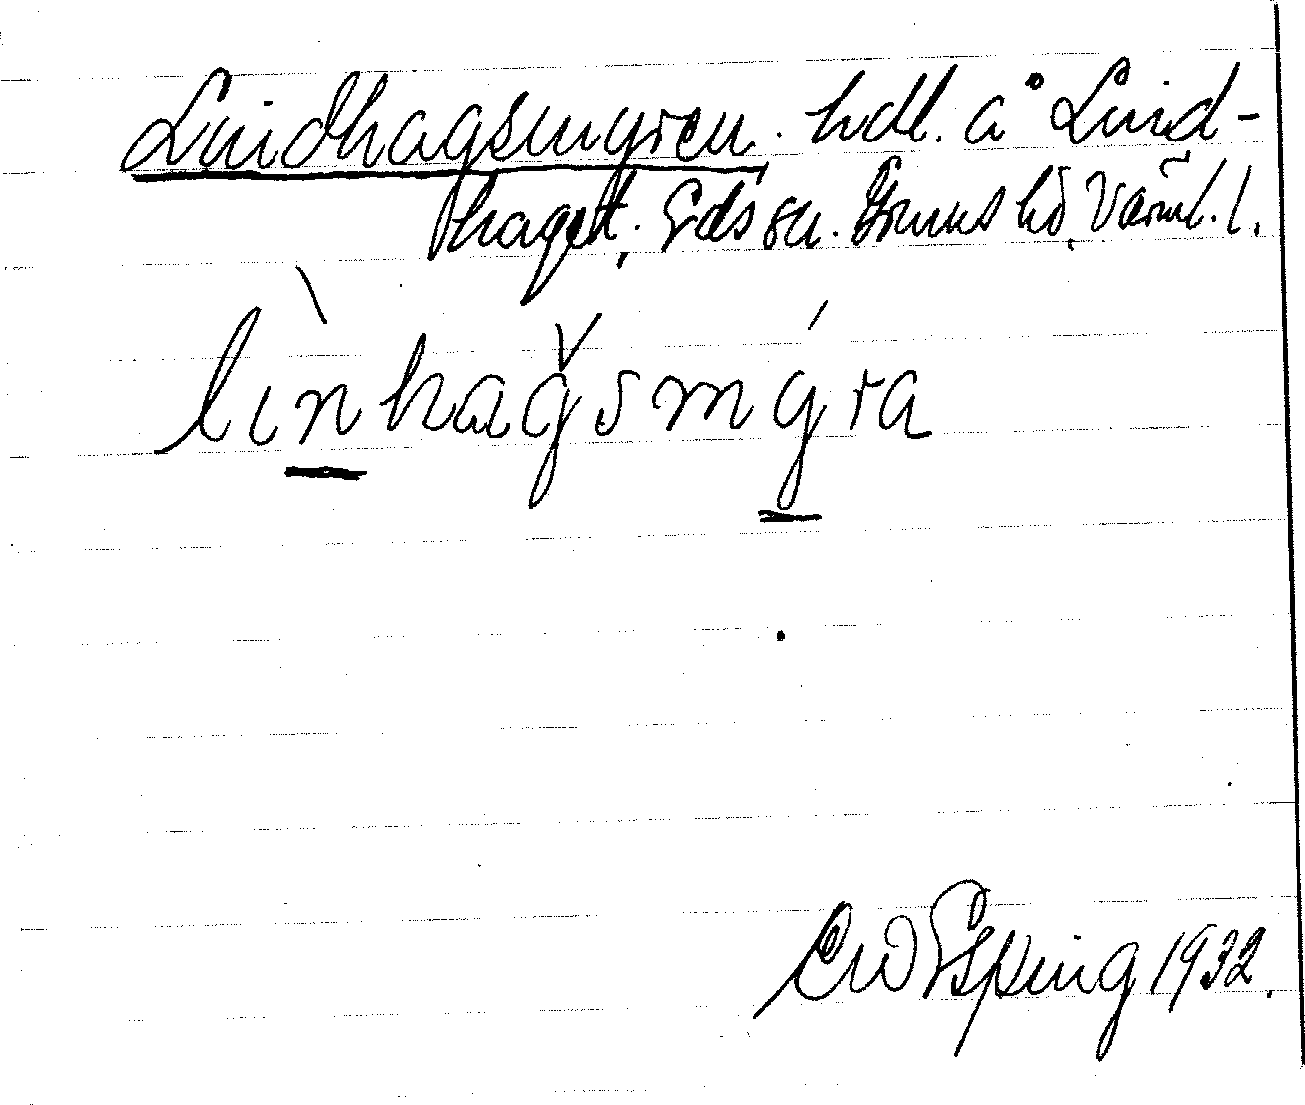 Lindhagsmyren. hdl. å Lind-
haget. Eds sn. Grums hd, Värml. l.
lìnhaǧsmýra
CW Esping 1932.